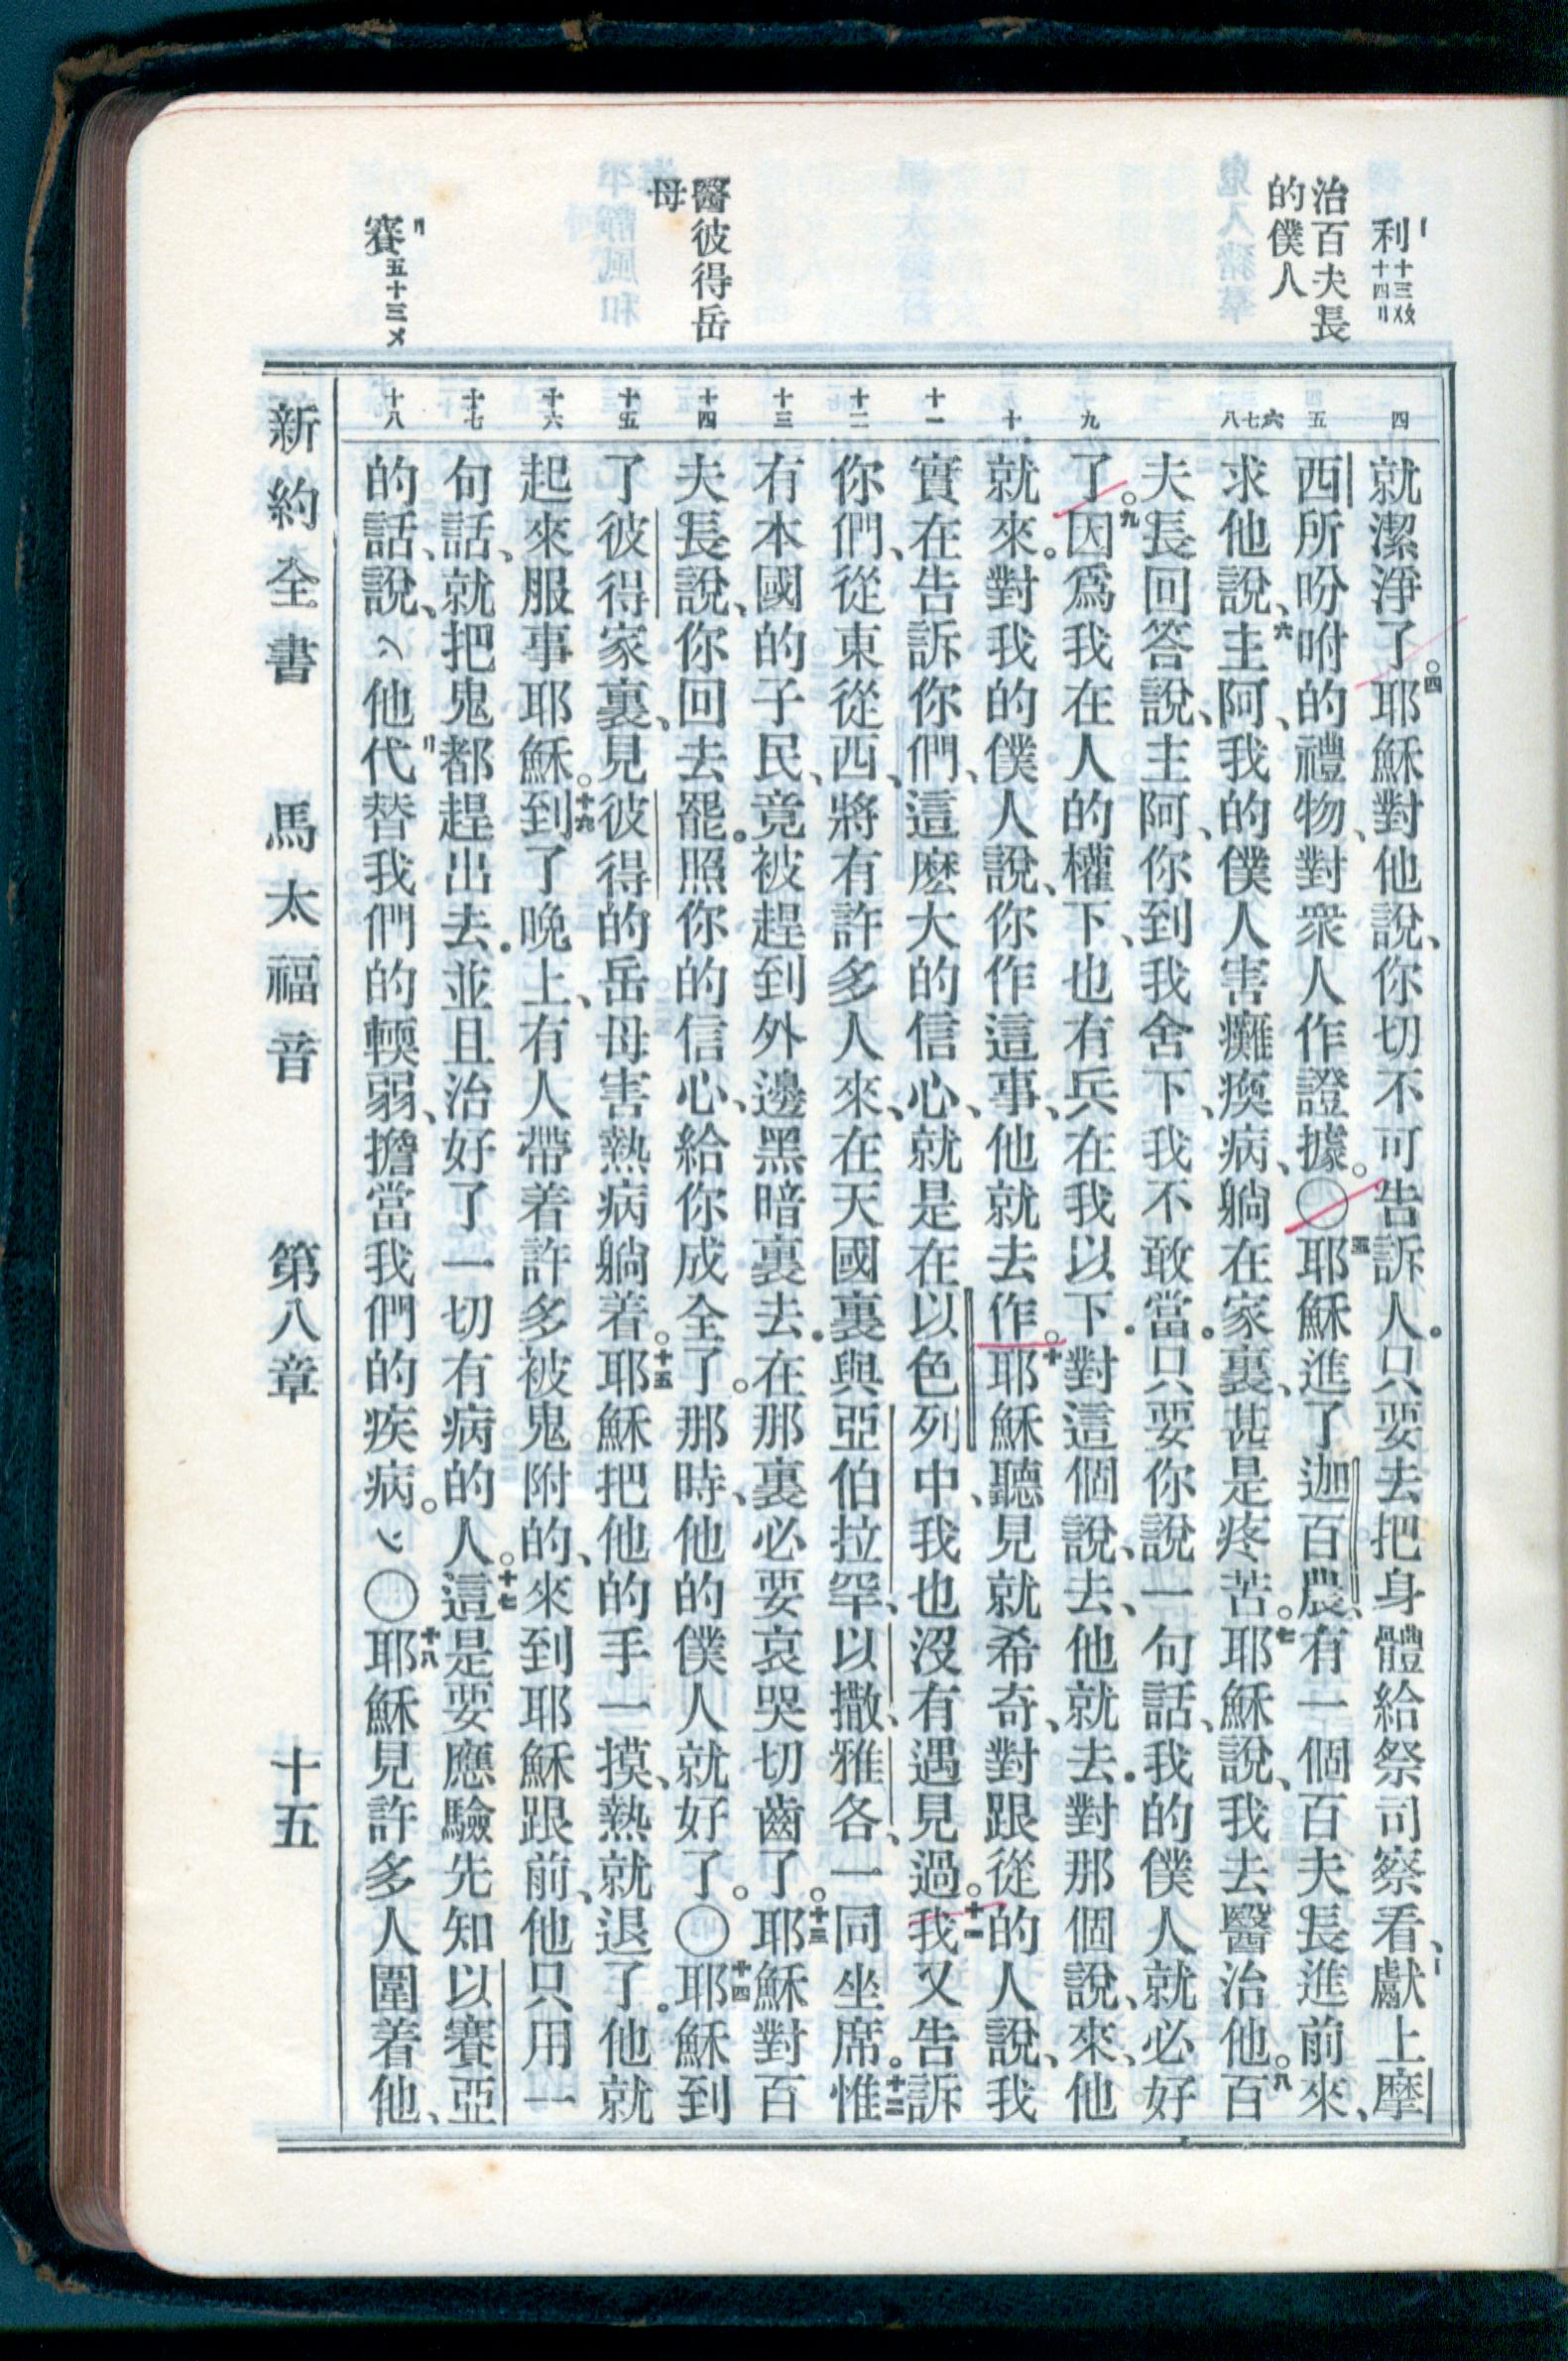 利十三〤〥
十四〢
治百夫長
的僕人
醫彼得岳
母
賽五十三〤
四 五 六 七 八 九 十 十一 十二 十三 十四 十五 十六 十七 十八
就潔淨了。四耶穌對他說、你切不可告訴人.只要去把身體給祭司察看、獻上摩
西所吩咐的禮物、對衆人作證據。〇五耶穌進了迦百農、有一個百夫長進前來、
求他說、六主阿、我的僕人害癱瘓病、躺在家裏、甚是疼苦。七耶穌說、我去醫治他。八百
夫長回答說、主阿、你到我舍下、我不敢當.只要你說一句話、我的僕人就必好
了。九因爲我在人的權下、也有兵在我以下.對這個說、去、他就去.對那個說、來、他
就來。對我的僕人說、你作這事、他就去作。十耶穌聽見就希奇、對跟從的人說、我
實在告訴你們、這麽大的信心、就是在以色列中、我也沒有遇見過。十一我又告訴
你們、從東從西、將有許多人來、在天國裏與亞伯拉罕、以撒、雅各、一同坐席.十二惟
有本國的子民、竟被趕到外邊黑暗裏去.在那裏必要哀哭切齒了。十三耶穌對百
夫長說、你回去罷.照你的信心、給你成全了。那時、他的僕人就好了。〇十四耶穌到
了彼得家裏、見彼得的岳母害熱病躺着。十五耶穌把他的手一摸、熱就退了.他就
起來服事耶穌。十六到了晚上、有人帶着許多被鬼附的、來到耶穌跟前、他只用一
句話、就把鬼都趕出去.並且治好了一切有病的人。十七這是要應驗先知以賽亞
的話、說、他代替我們的輭弱、擔當我們的疾病。〇十八耶穌見許多人圍着他、
新約全書 馬太福音 第八章 十五